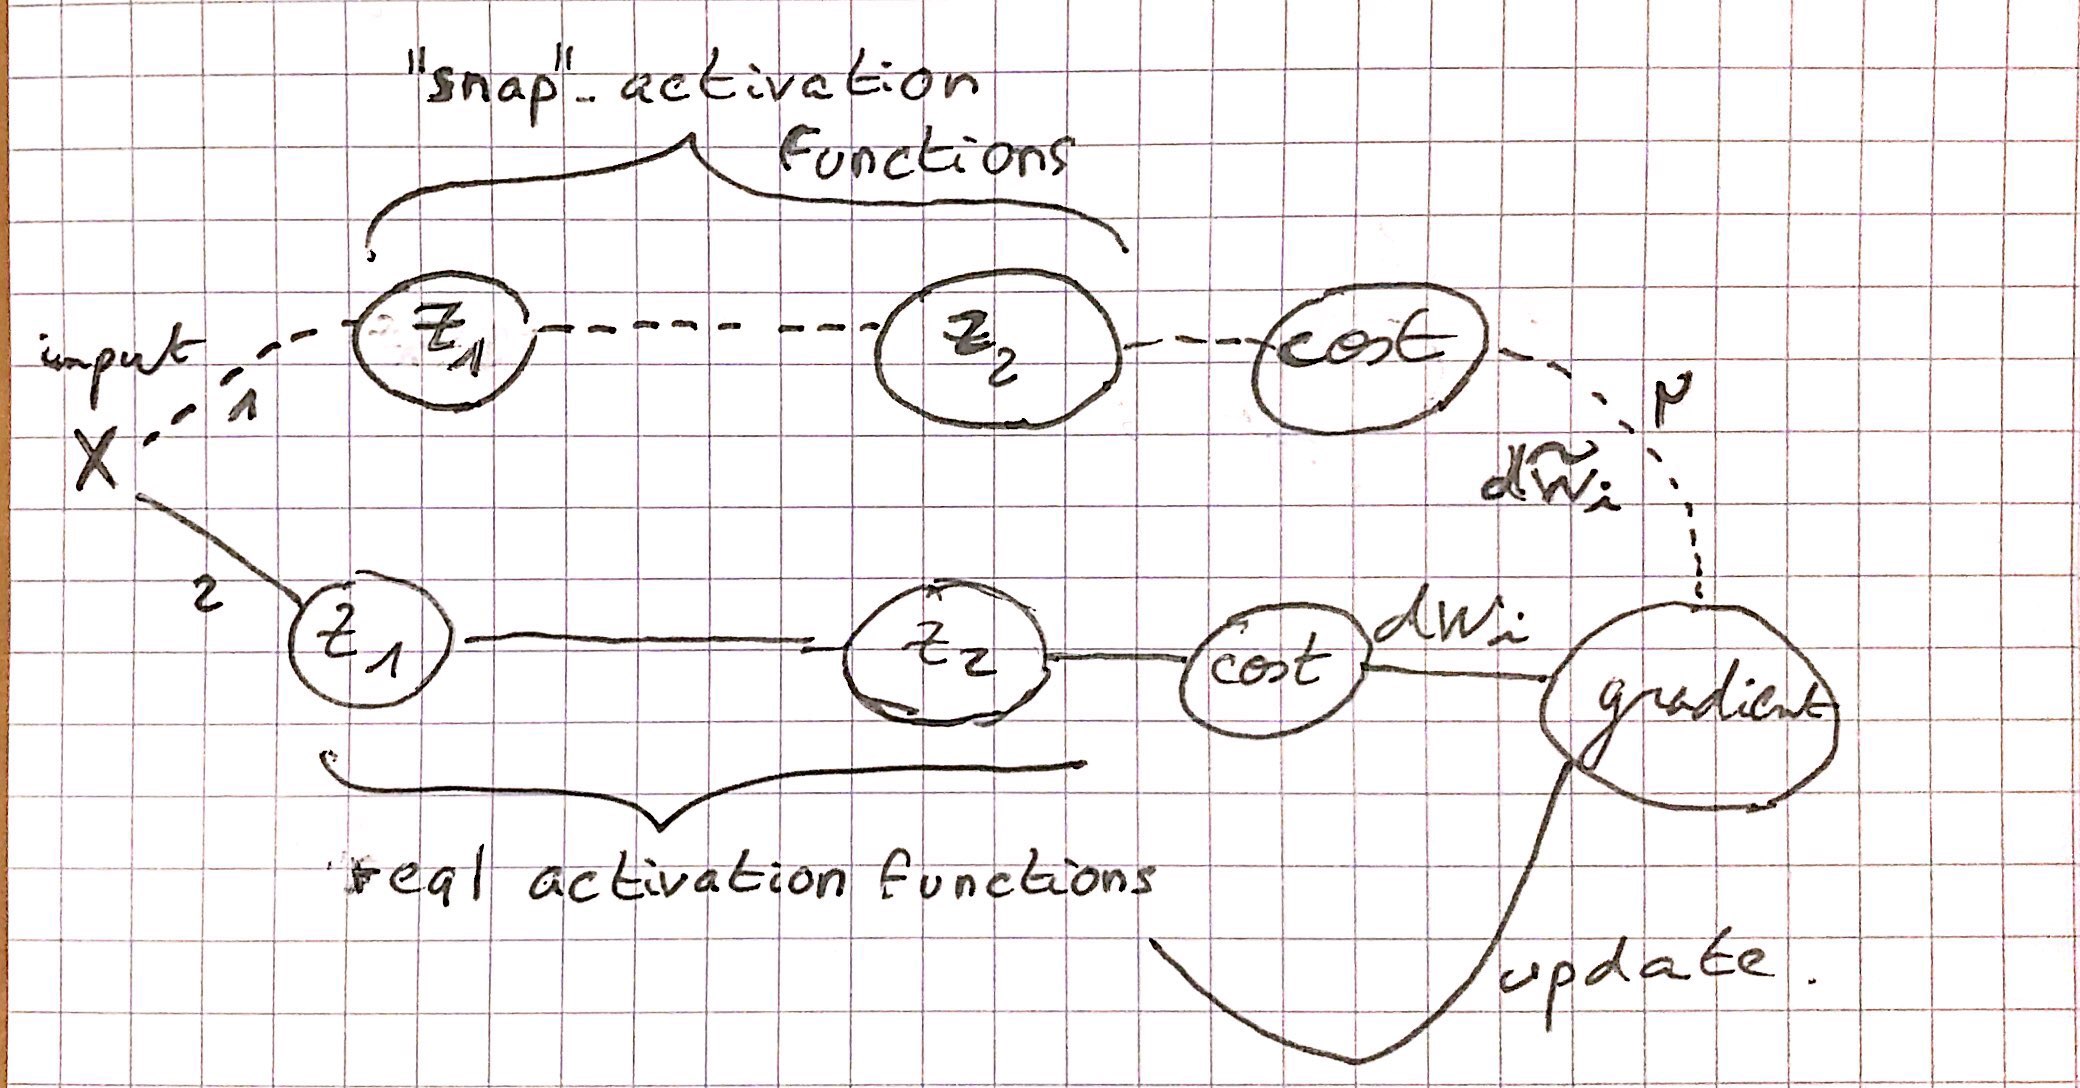 "snap"- activation
functions
input
X
1
z₁
z₂
cost
dw̃ᵢ
2
z₁
z₂
cost
dwᵢ
gradient
real activation functions
update.